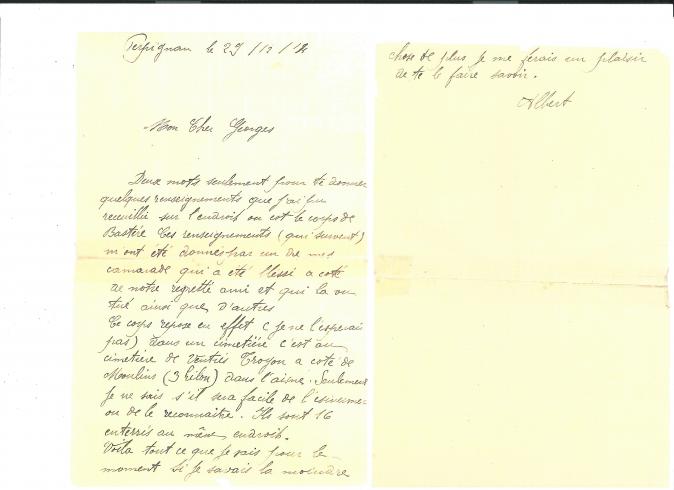 Perpignan le 29/12/14
Mon Cher Georges
Deux mots seulement pour te donner
quelques renseignements que j'ai pu
recueillir sur l'endroit ou est le corps de
Bastére Ces renseignements (qui suivent)
m'ont été donnés par un de mes
camarade qui a été blessé a coté
de notre regretté ami et qui la vu
tué ainsi que d'autres
Ce corps repose en effet (je ne l'esperais
pas) dans un cimetiére c'est au
cimetiere de Troyon a coté de
Moulins (3 kilom) dans l'aisne. Seulement
je ne sais s'il sera facile de
ou de le reconnaitre. Ils sont 16
enterrés au même endroit.
Voila tout ce que je sais pour le
moment si je savais la moindre
chose de plus je me ferais un plaisir
de te le faire savoir.
Albert